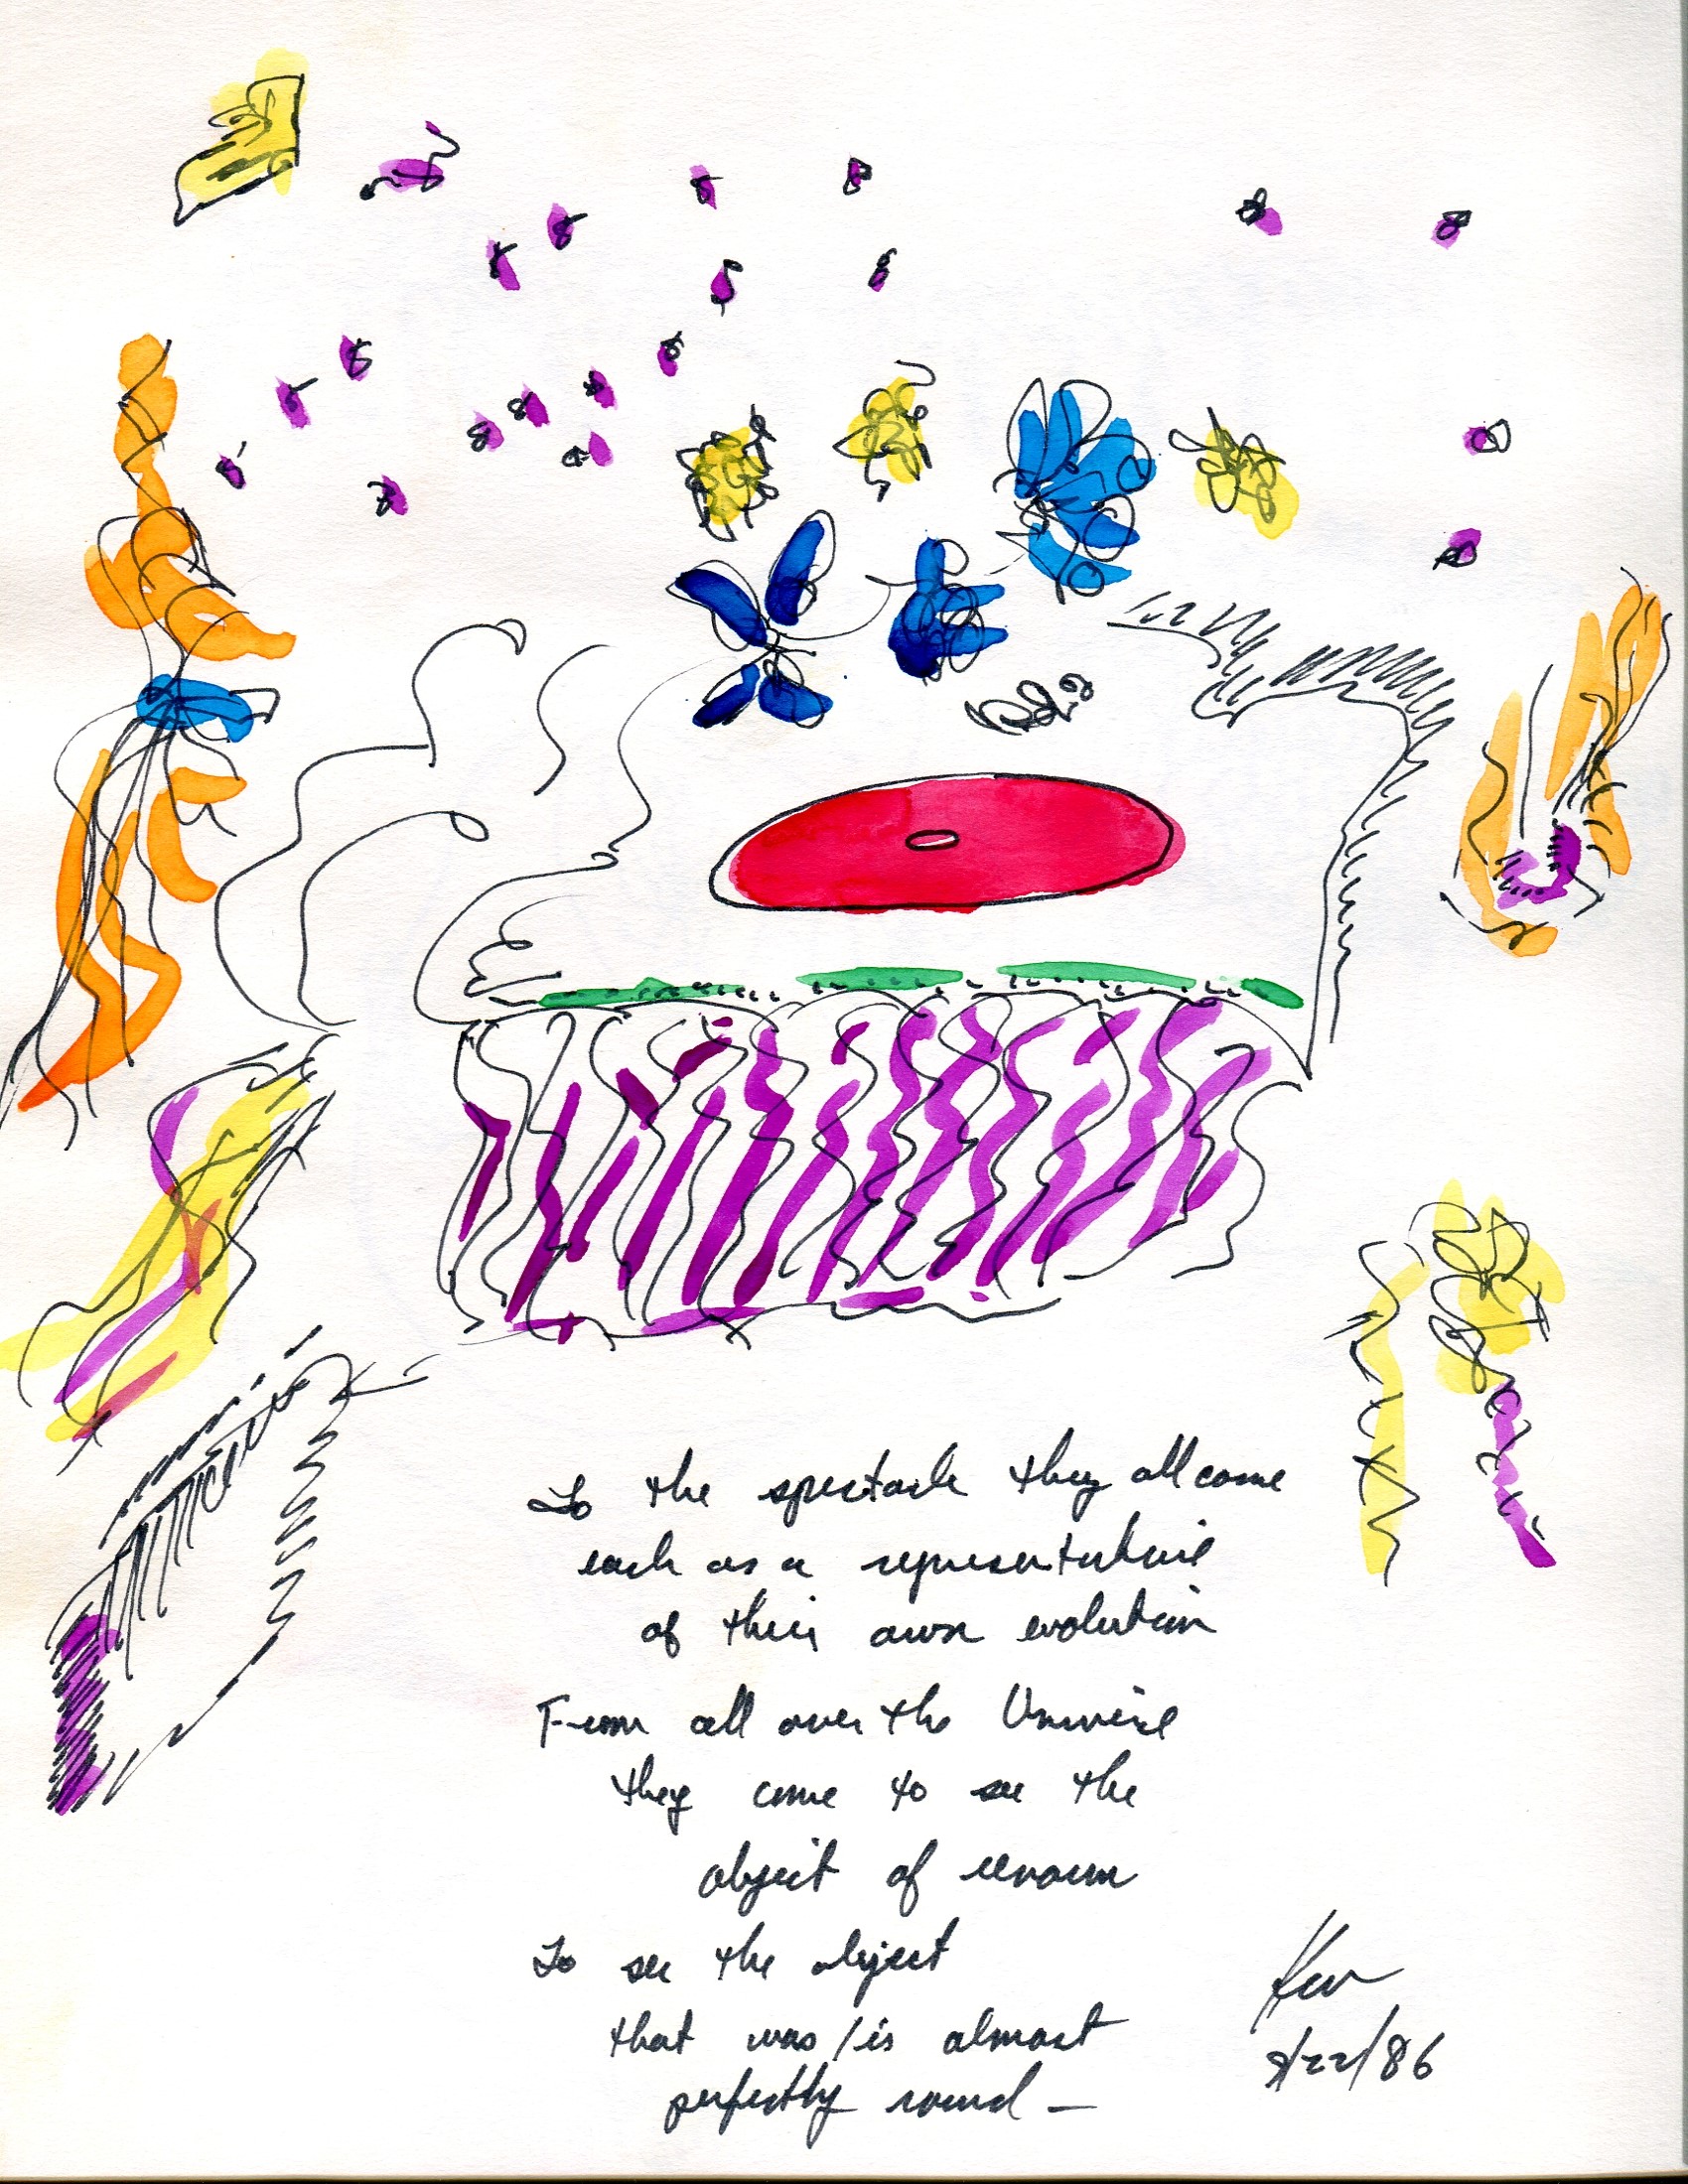 To the spectacle they all come
each as a representative
of their own evolution
From all over the Universe
they come to see the
object of renown
To see the object
that was/is almost
perfectly round —
Ken
8/22/86